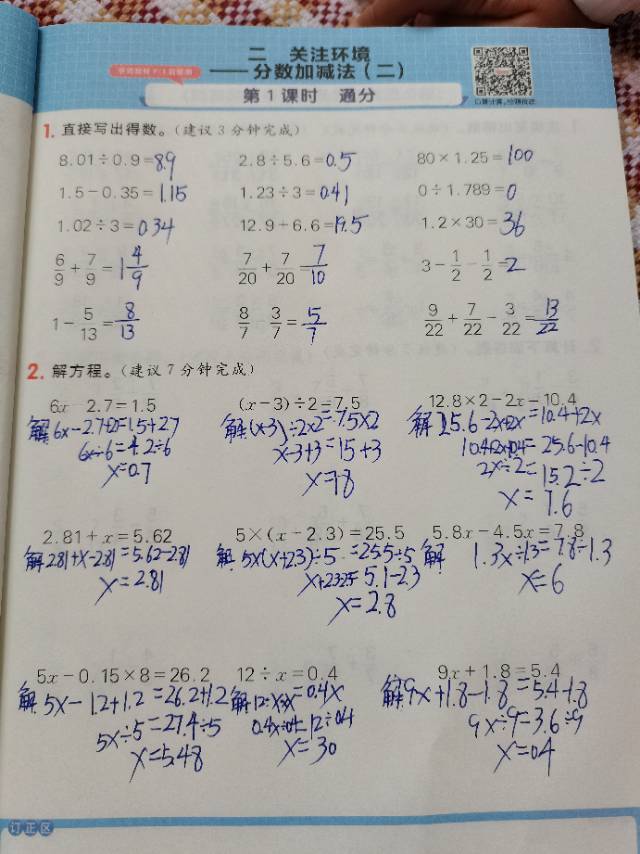 二 关注环境
——分数加减法(二)
口算计算,分预批改
第1课时 通分
1. 直接写出得数。(建议3分钟完成)
8.01÷0.9=8.9 2.8÷5.6=0.5 80×1.25=100
1.5-0.35=1.15 1.23÷3=0.41 0÷1.789=0
1.02÷3=0.34 12.9+6.6=19.5 1.2×30=36
6/9+7/9=1 4/9 7/20+7/20=7/10 3-1/2-1/2=2
1-5/13=8/13 8/7-3/7=5/7 9/22+7/22-3/22=13/22
2. 解方程。(建议7分钟完成)
6x-2.7=1.5 (x-3)÷2=7.5 12.8×2-2x=10.4
解 6x-2.7+2.7=1.5+2.7 解 (x-3)÷2×2=7.5×2 解 25.6-2x+2x=10.4+2x
6x÷6=4.2÷6 x-3+3=15+3 10.4+2x-10.4=25.6-10.4
x=0.7 x=18 2x÷2=15.2÷2
x=7.6
2.81+x=5.62 5×(x-2.3)=25.5 5.8x-4.5x=7.8
解 2.81+x-2.81=5.62-2.81 解 5×(x+2.3)÷5=25.5÷5 解 1.3x÷1.3=7.8÷1.3
x=2.81 x+2.3-2.3=5.1-2.3 x=6
x=2.8
5x-0.15×8=26.2 12÷x=0.4 9x+1.8=5.4
解 5x-1.2+1.2=26.2+1.2 解 12÷x×x=0.4x 解 9x+1.8-1.8=5.4-1.8
5x÷5=27.4÷5 0.4x÷0.4=12÷0.4 9x÷9=3.6÷9
x=5.48 x=30 x=0.4
订正区